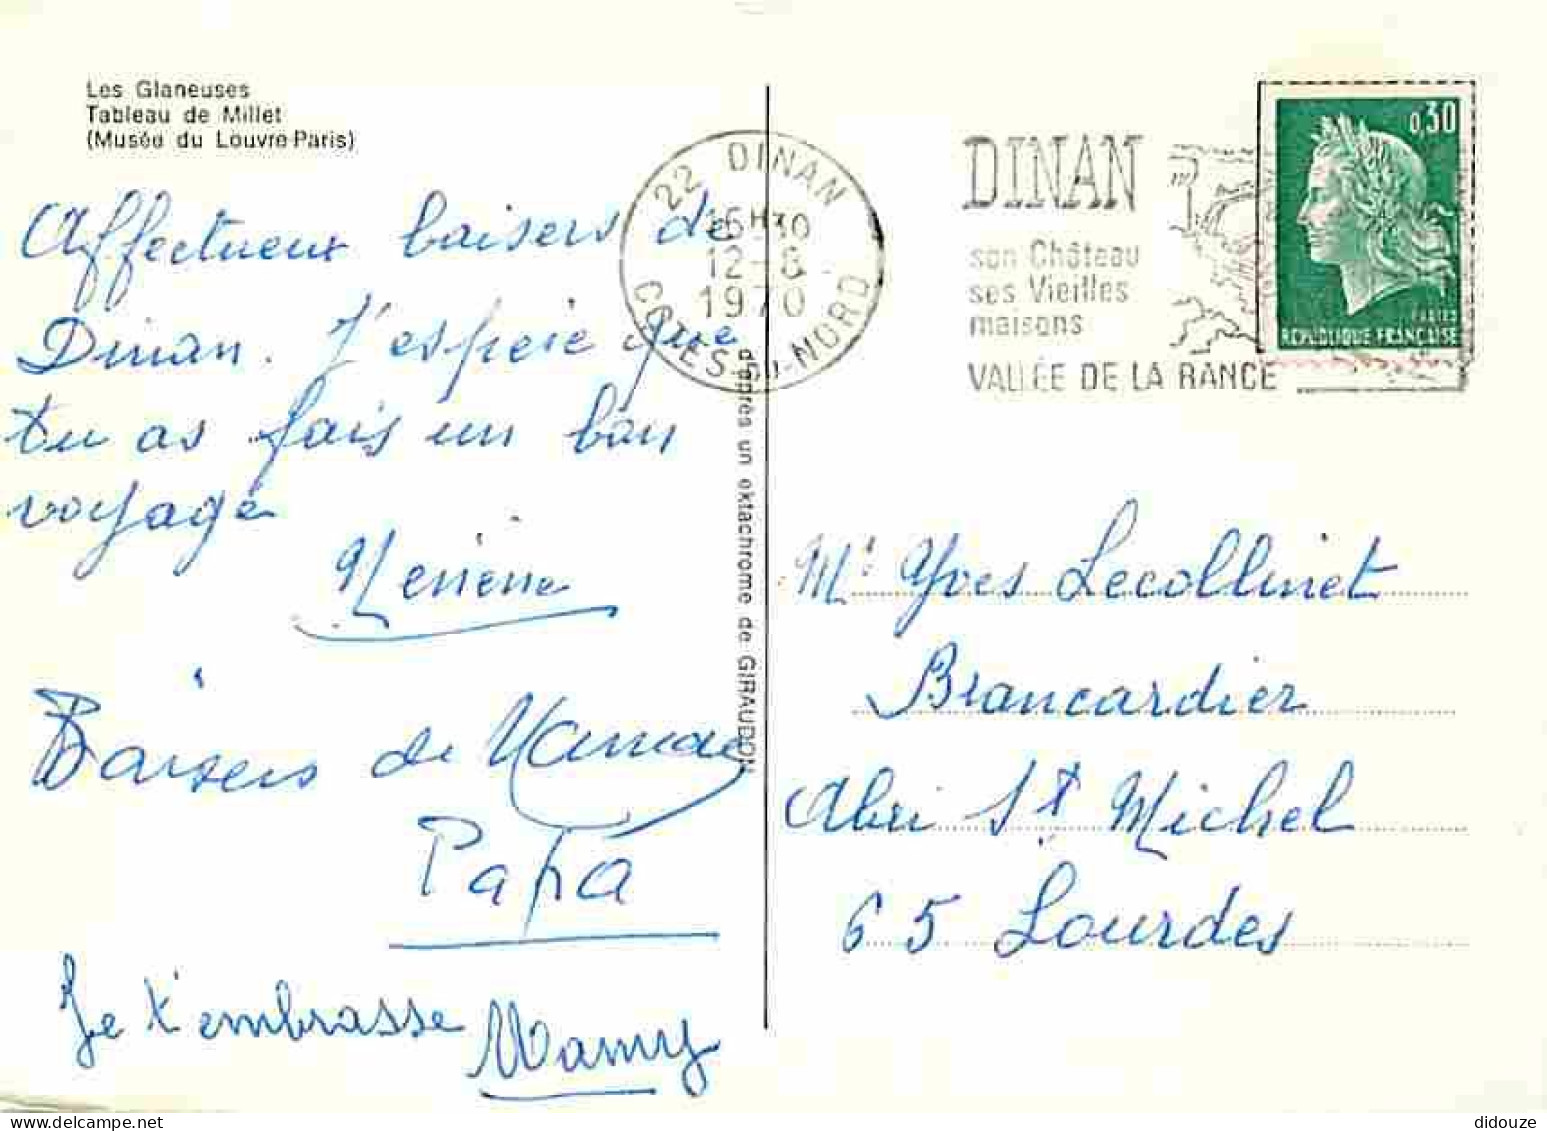 Les Glaneuses
Tableau de Millet
(Musée du Louvre-Paris)
Affectueux baisers de
Dinan. J'espère que
tu as fais un bon
voyage
Baisers de Maman
Papa
Je t'embrasse Mamy
d'après un ektachrome de GIRAUDON
22 DINAN
15H30
12-8
1970
COTES-DU-NORD
DINAN
son Château
ses Vieilles
maisons
VALLÉE DE LA RANCE
0,30
POSTES
REPUBLIQUE FRANÇAISE
Mr Yves Lecollinet
Brancardier
Abri St Michel
65 Lourdes
didouze